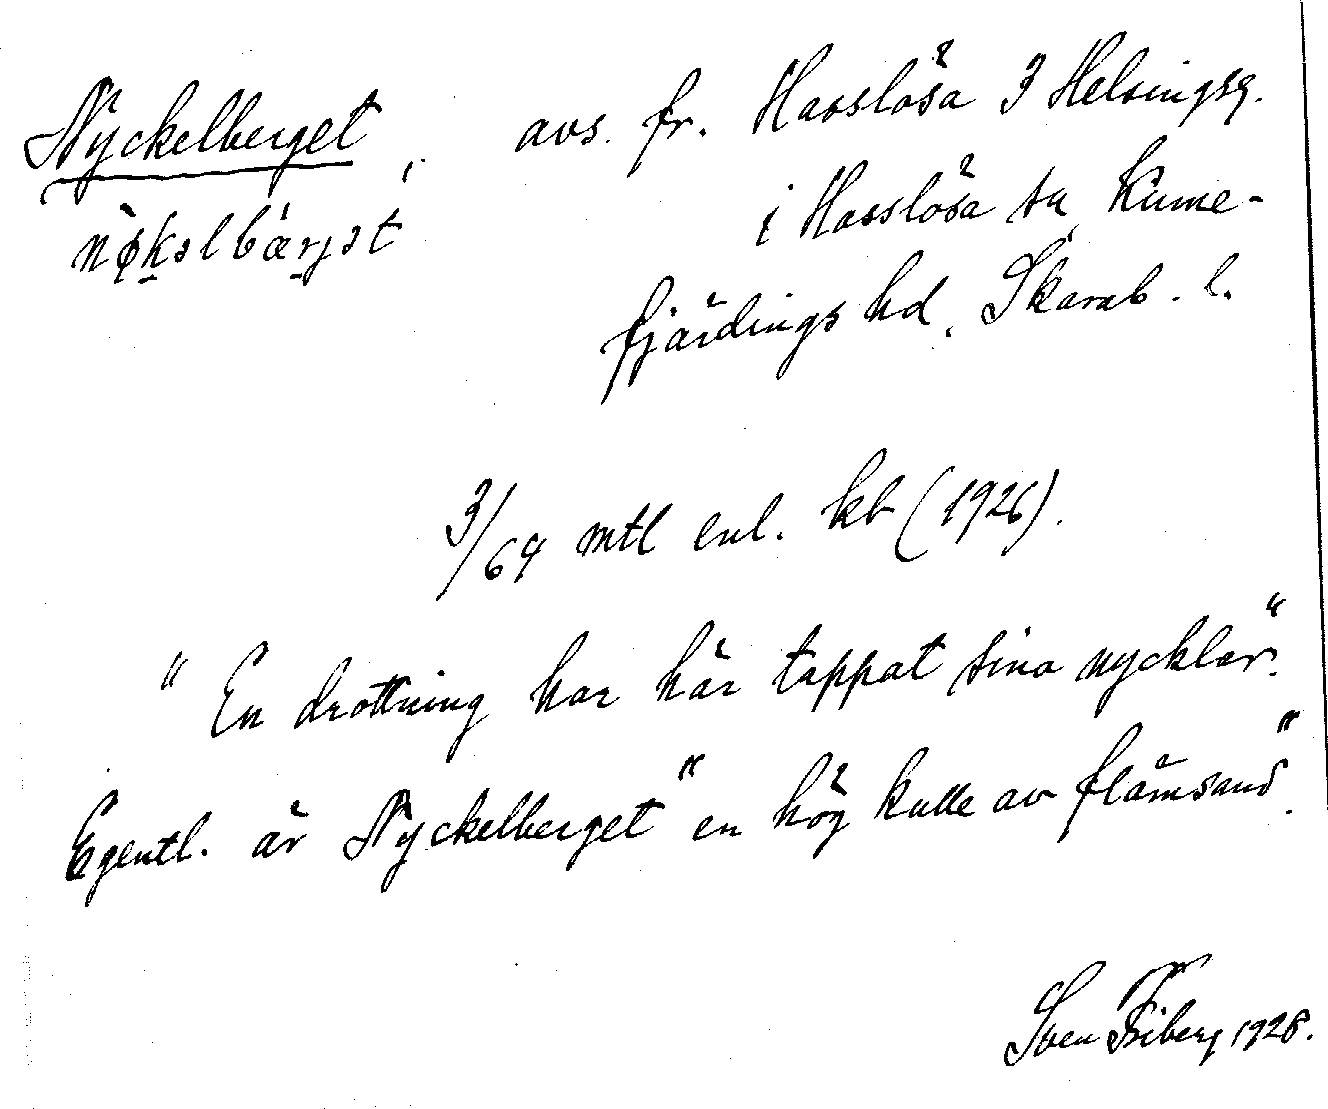 Nyckelberget, avs. fr. Hasslösa 3 Helsingsg.
nø̀kəlbærjət i Hasslösa sn, Kinne-
fjärdings hd, Skarab. l.
3/64 mtl enl. kb (1926).
"En drottning har här tappat sina nycklar."
Egentl. är Nyckelberget "en hög kulle av flämsand".
Sven Friberg 1928.